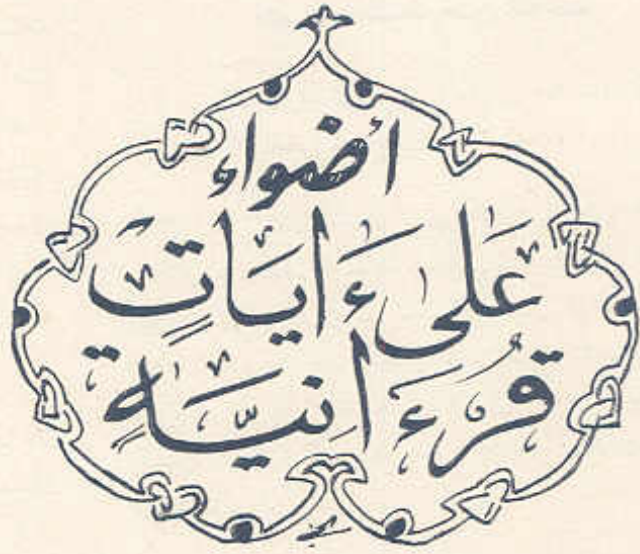 أضواء
عَلَىٰ ءَايَاتٍ
قُرْءَانِيَّةٍ